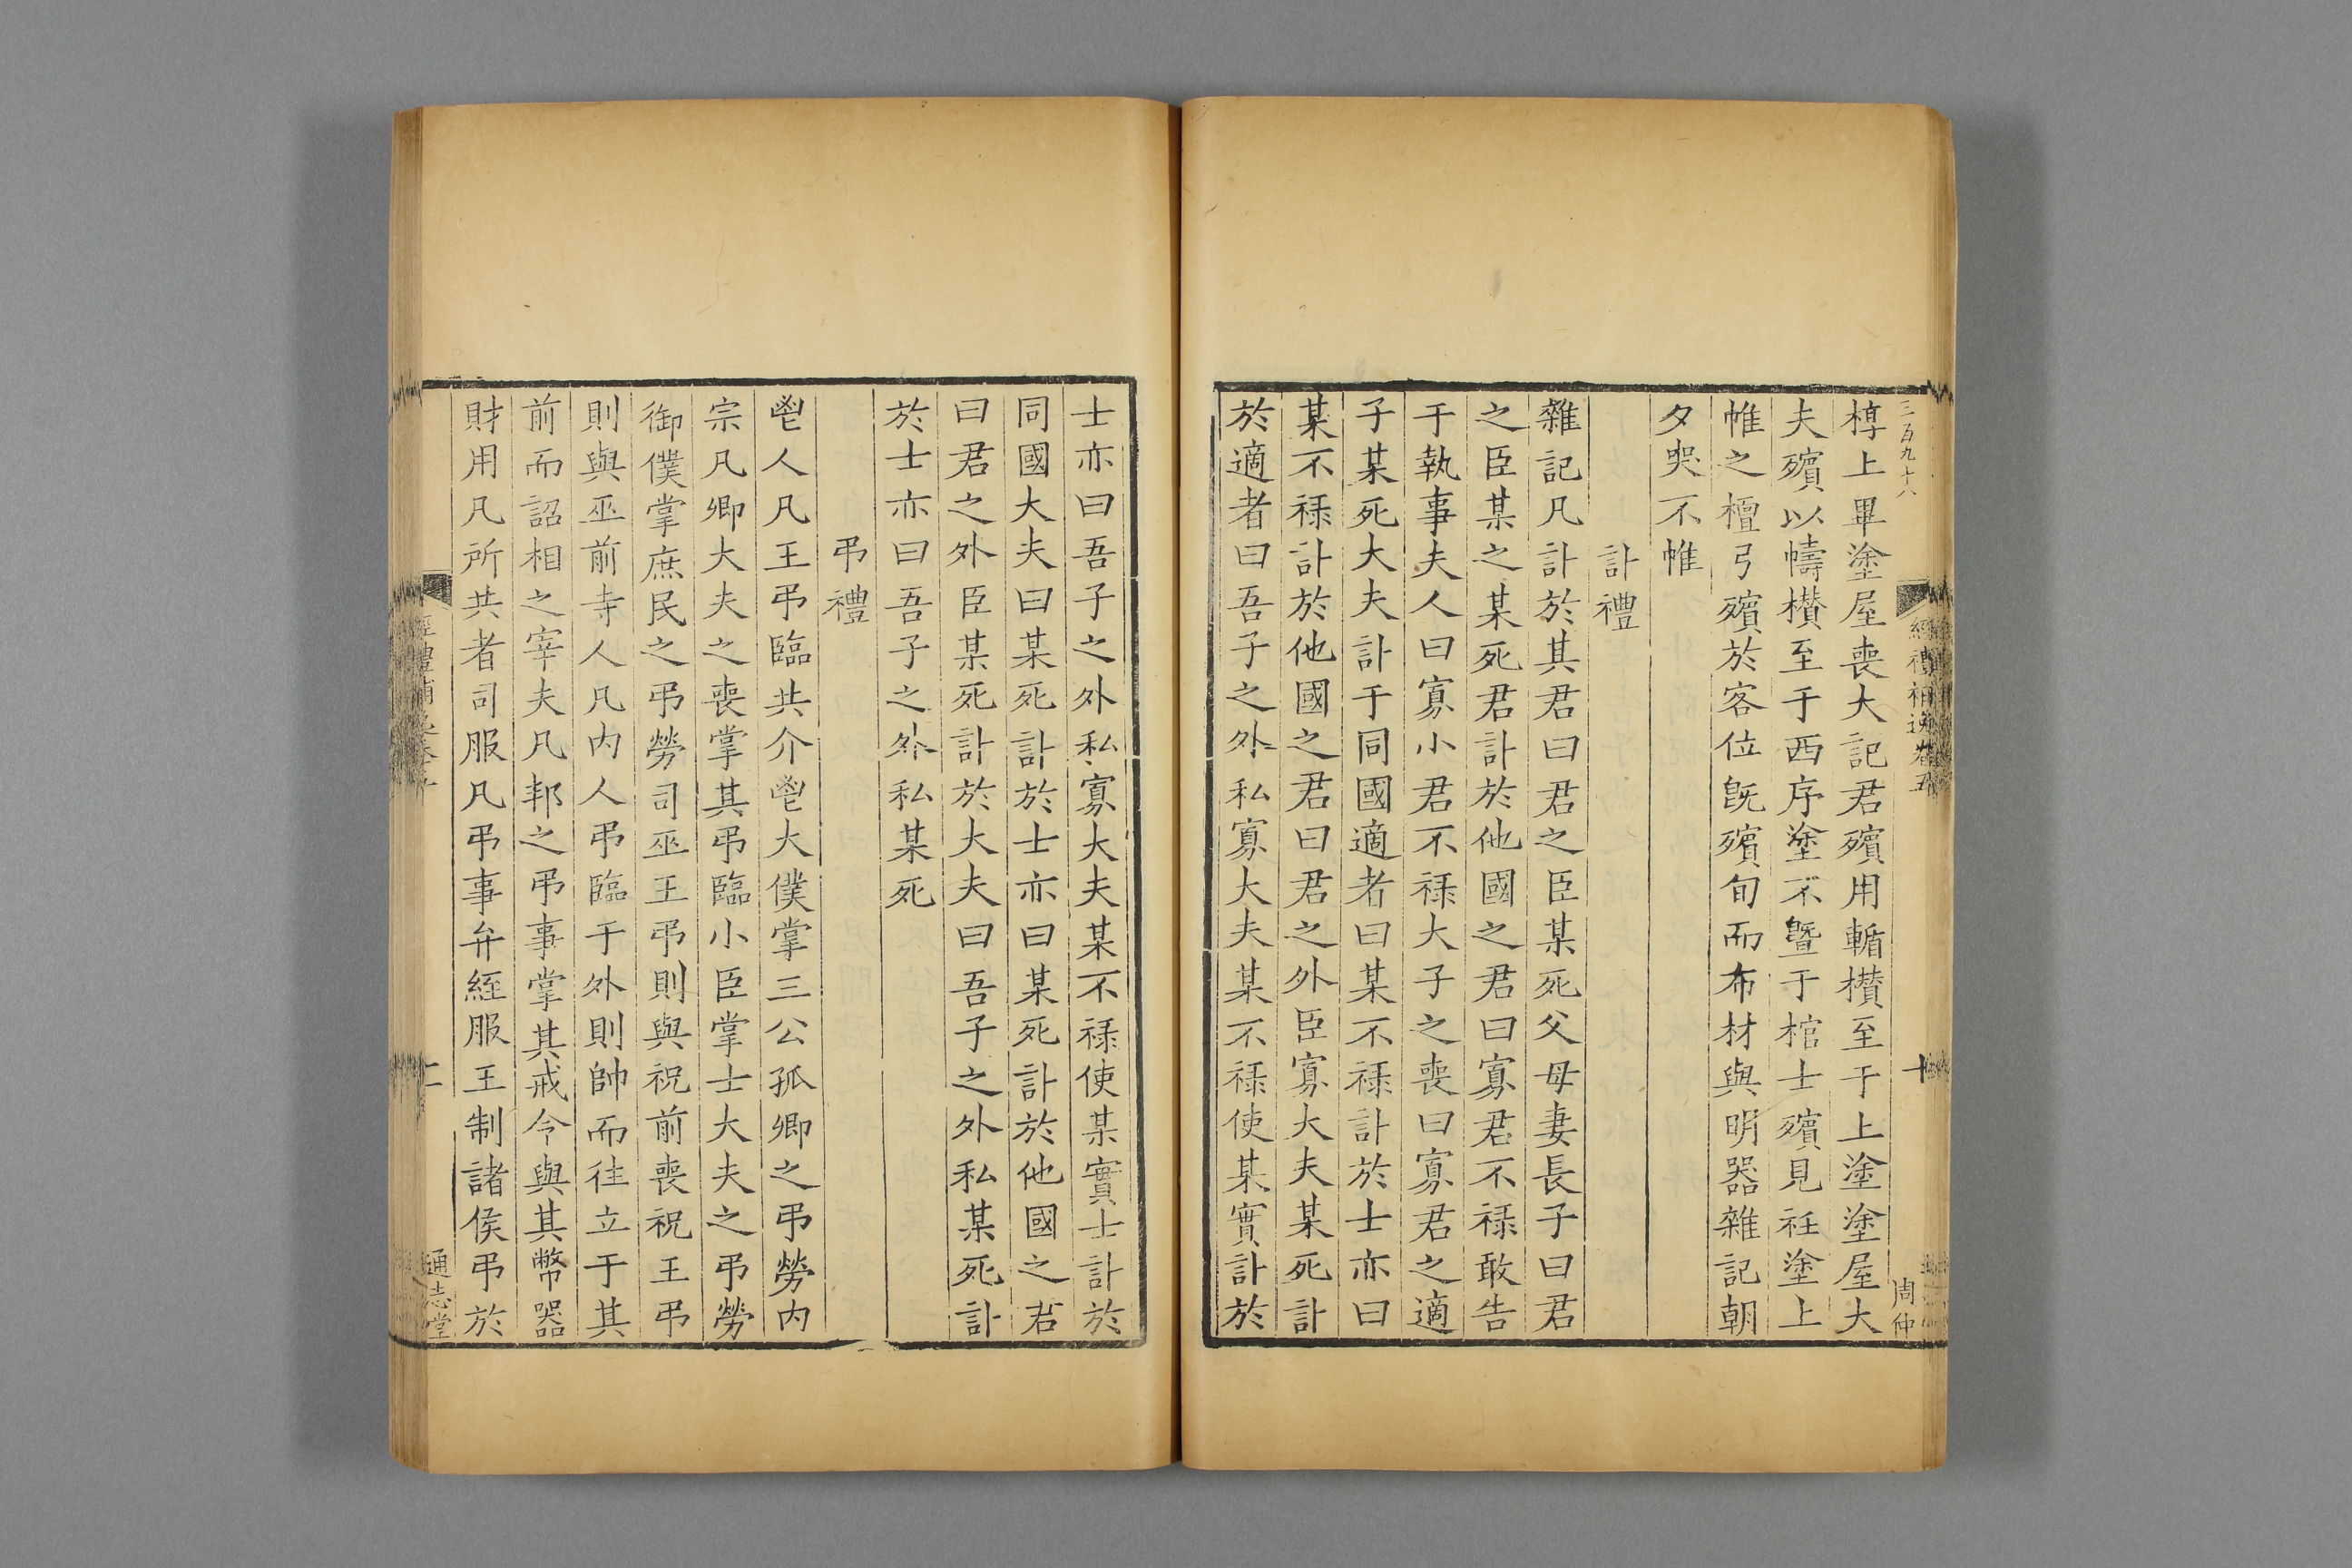 三百九十八
經禮補逸卷五
十
周仲
椁上畢塗屋喪大記君殯用輴欑至于上塗塗屋大
夫殯以幬欑至于西序塗不曁于棺士殯見衽塗上
帷之檀弓殯於客位旣殯旬而布材與明器雜記朝
夕哭不帷
訃禮
雜記凡訃於其君曰君之臣某死父母妻長子曰君
之臣某之某死君訃於他國之君曰寡君不祿敢告
于執事夫人曰寡小君不祿大子之喪曰寡君之適
子某死大夫訃于同國適者曰某不祿訃於士亦曰
某不祿訃於他國之君曰君之外臣寡大夫某死訃
於適者曰吾子之外私寡大夫某不祿使某實訃於
士亦曰吾子之外私寡大夫某不祿使某實士訃於
同國大夫曰某死訃於士亦曰某死訃於他國之君
曰君之外臣某死訃於大夫曰吾子之外私某死訃
於士亦曰吾子之外私某死
弔禮
鬯人凡王弔臨共介鬯大僕掌三公孤卿之弔勞內
宗凡卿大夫之喪掌其弔臨小臣掌士大夫之弔勞
御僕掌庶民之弔勞司巫王弔則與祝前喪祝王弔
則與巫前寺人凡內人弔臨于外則帥而往立于其
前而詔相之宰夫凡邦之弔事掌其戒令與其幣器
財用凡所共者司服凡弔事弁絰服王制諸侯弔於
通志堂